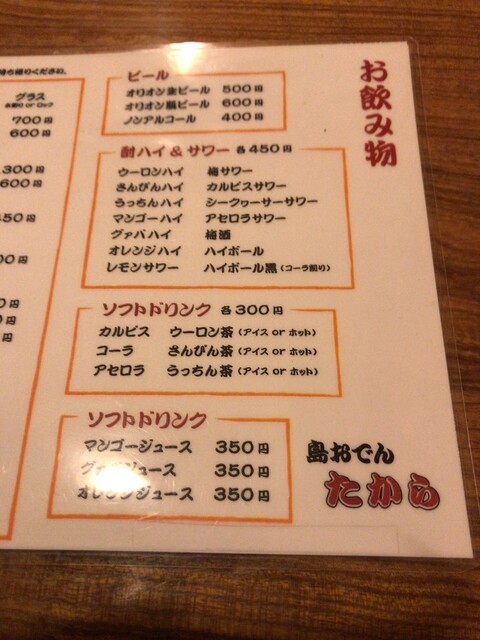 お飲み物
ビール
オリオン生ビール 500円
オリオン瓶ビール 600円
ノンアルコール 400円
酎ハイ&サワー 各450円
ウーロンハイ 梅サワー
さんぴんハイ カルピスサワー
うっちんハイ シークヮーサーサワー
マンゴーハイ アセロラサワー
グァバハイ 梅酒
オレンジハイ ハイボール
レモンサワー ハイボール黒(コーラ割り)
ソフトドリンク 各300円
カルピス ウーロン茶(アイス or ホット)
コーラ さんぴん茶(アイス or ホット)
アセロラ うっちん茶(アイス or ホット)
ソフトドリンク
マンゴージュース 350円
グァバジュース 350円
オレンジジュース 350円
島おでん
たから
グラス
水割り or ロック
700円
600円
300円
600円